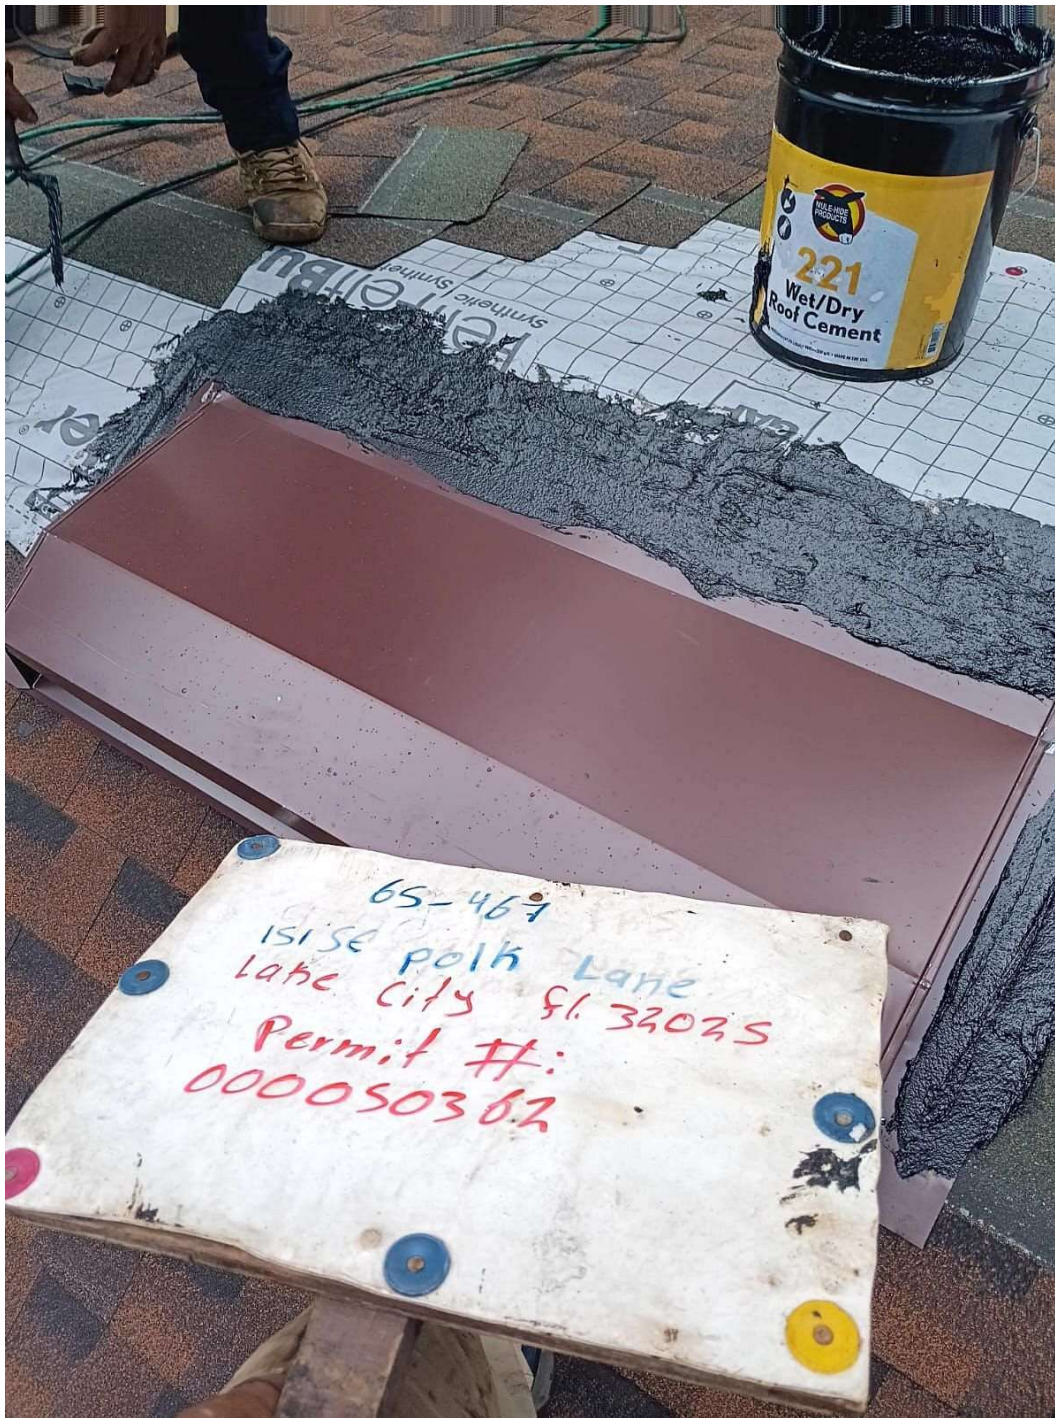 MULE-HIDE
PRODUCTS
221
Wet/Dry
Roof Cement
FeltBu
Synthetic
65-467
151 SE polk Lane
Lake City fl. 32025
Permit #:
000050362